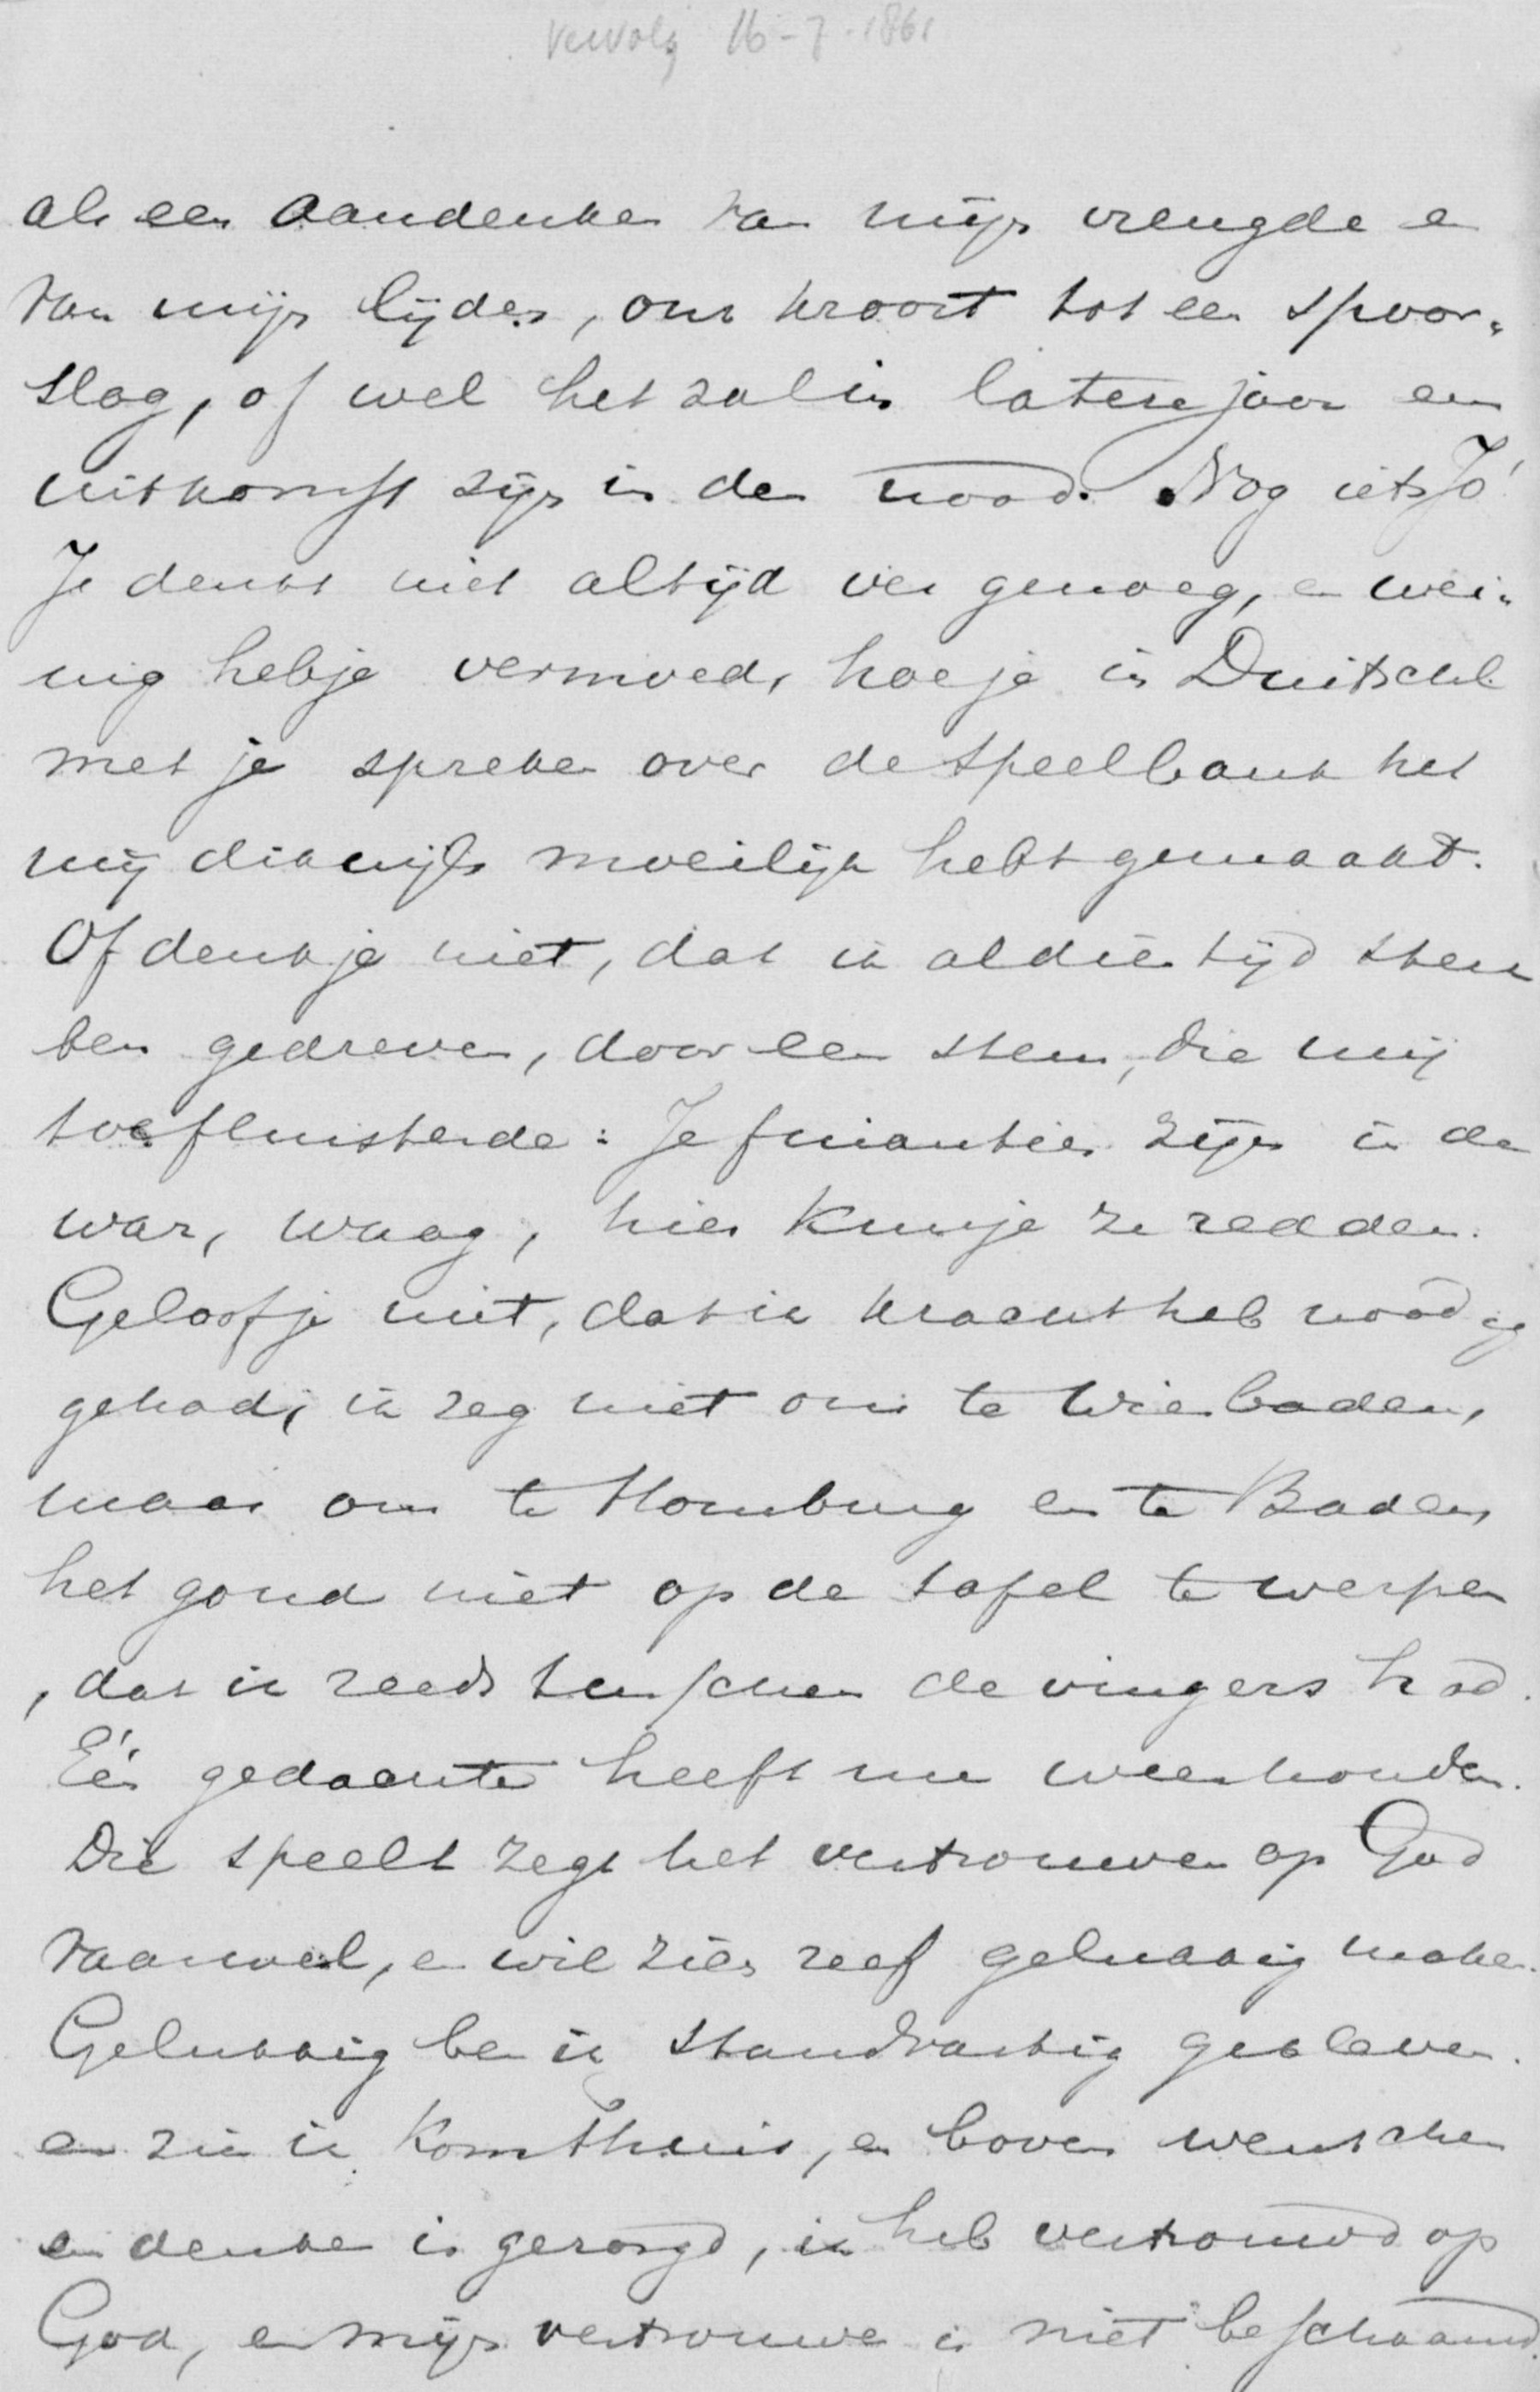 Vervolg 16-7-1861
als een aandenken van mijn vreugde en
van mijn lijden, ons kroost tot een spoor-
slag, of wel het zal in latere jaren een
uitkomst zijn in den nood. Nog iets Jó!
Je denkt niet altijd ver genoeg, en wei-
nig heb je vermoed, hoe je in Duitschl.
met je spreken over de speelbank het
mij dikwijls moeilijk hebt gemaakt.
Of denk je niet, dat ik al dien tijd sterk
ben gedreven, door een stem, die mij
toefluisterde: Je finantien zijn in de
war, waag, hier kun je ze redden.
Geloof je niet, dat ik kracht heb noodig
gehad, ik zeg niet om te Wiesbaden,
maar om te Homburg en te Baden
het goud niet op de tafel te werpen
, dat ik reeds tusschen de vingers had.
Eén gedachte heeft me weerhouden.
Die speelt zegt het vertrouwen op God
vaarwel, en wil zich zelf gelukkig maken.
Gelukkig ben ik standvastig gebleven.
en zie ik kom thuis, en boven wenschen
en denken is gezorgd, ik heb vertrouwd op
God, en mijn vertrouwen is niet beschaamd.